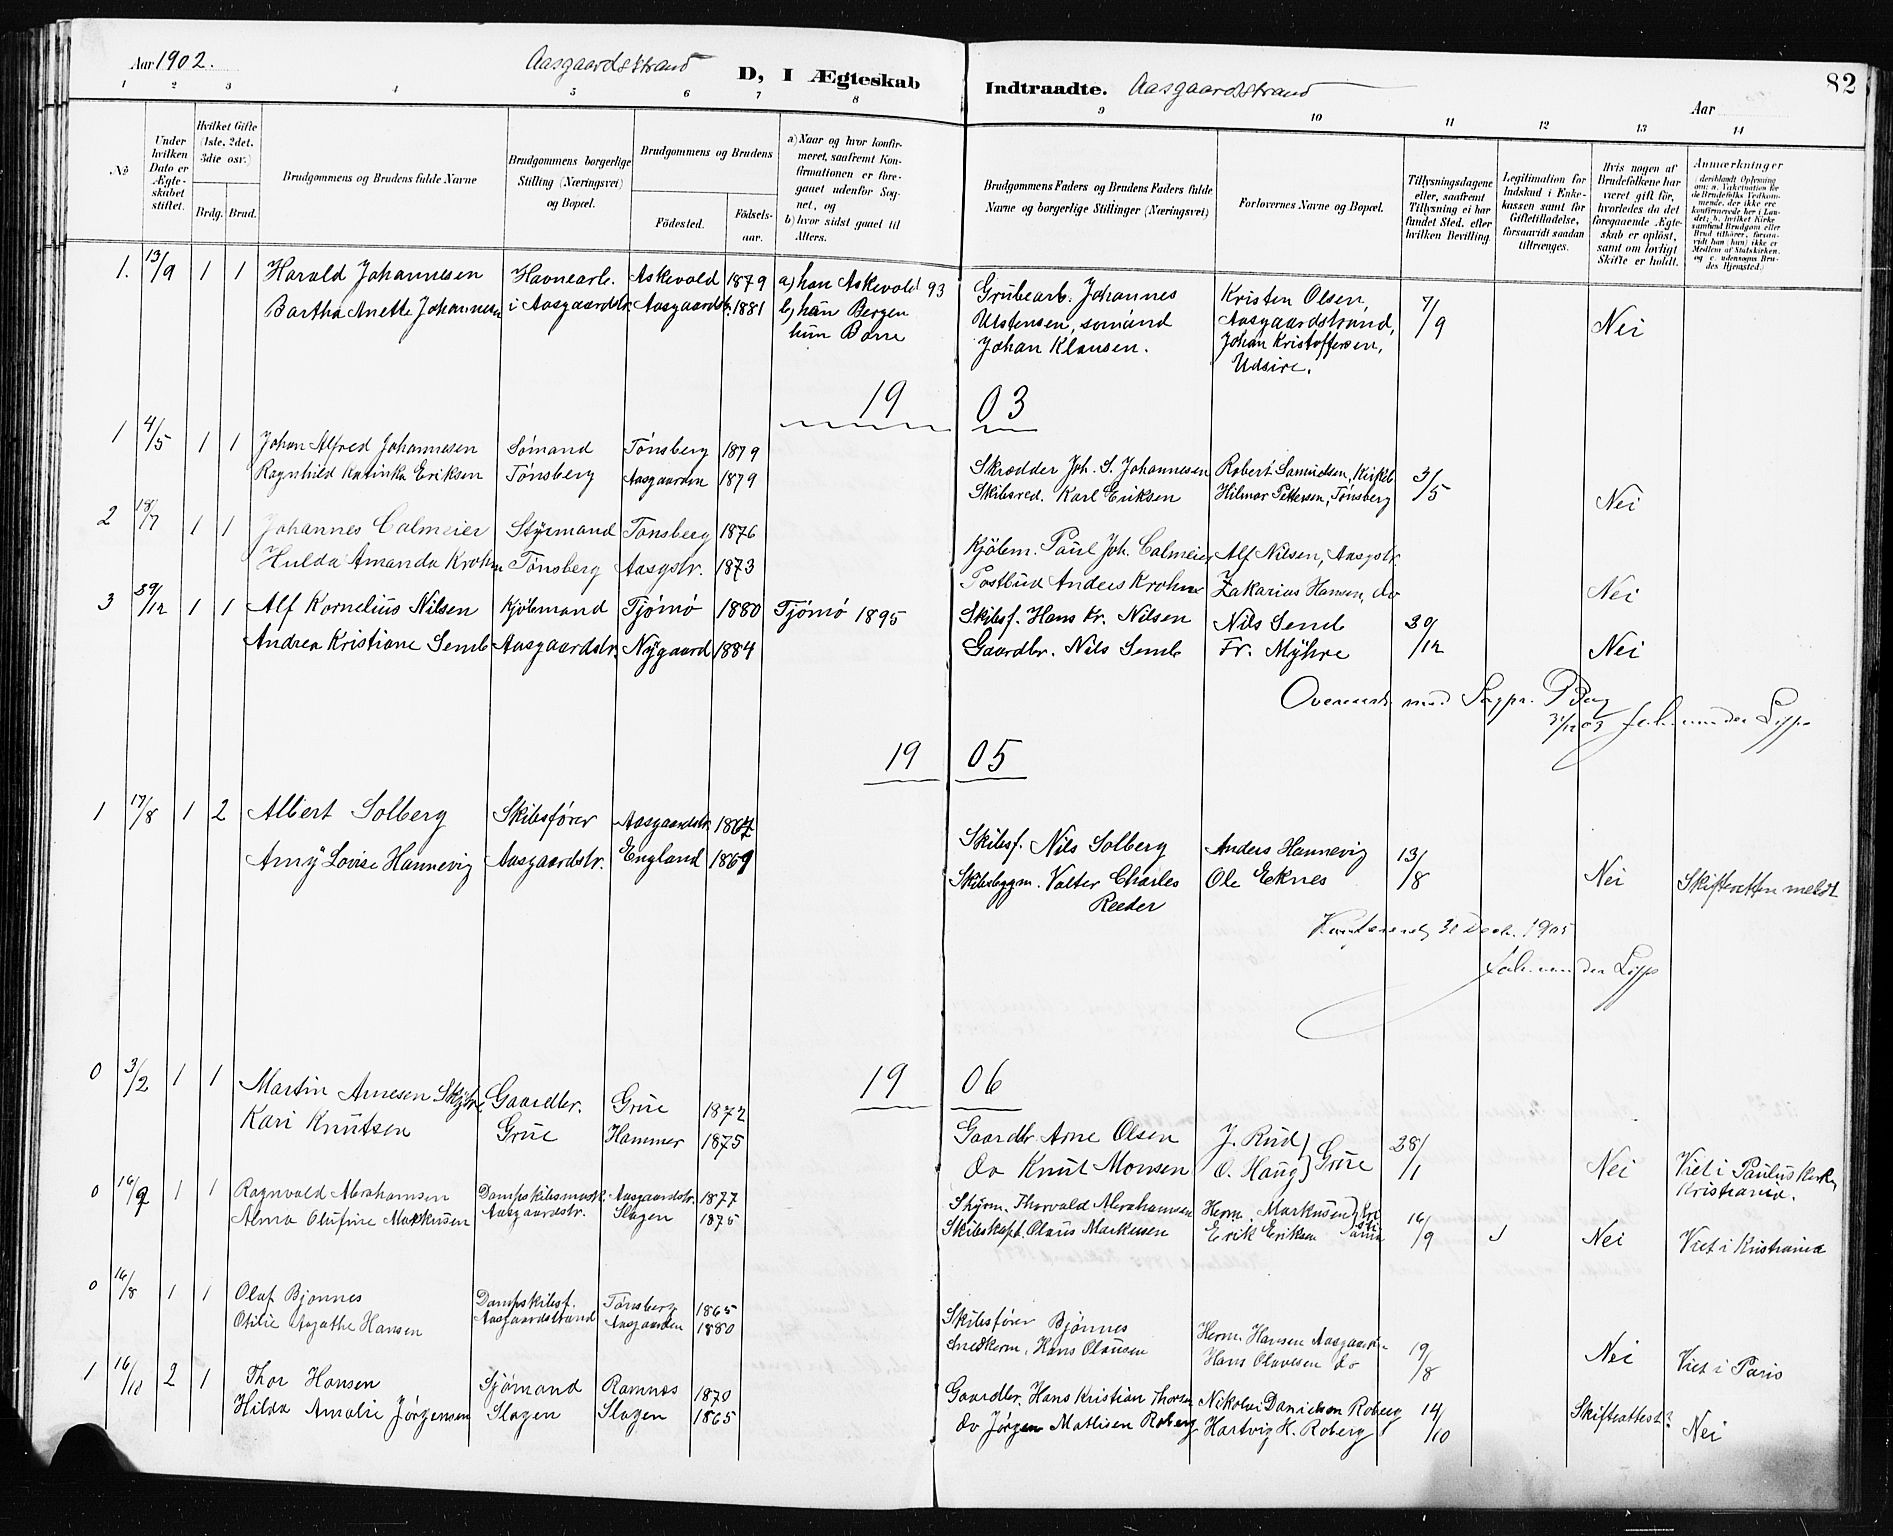 Aar 1902.
Aasgaardsstrand D, I Ægteskab Indtraadte. Aasgaardsstrand Aar
82
1 2 3 4 5 6 7 8 9 10 11 12 13 14
No
Under hvilken Dato er Ægteskabet stiftet.
Hvilket Gifte (1ste, 2det, 3die osv.)
Brdg. Brud.
Brudgommens og Brudens fulde Navne
Brudgommens borgerlige Stilling (Næringsvei) og Bopæl.
Brudgommens og Brudens
Fødested. Fødselsaar.
a) Naar og hvor konfirmeret, saafremt Konfirmationen er foregaaet udenfor Sognet, og
b) hvor sidst gaaet til Alters.
Brudgommens Faders og Brudens Faders fulde Navne og borgerlige Stillinger (Næringsvei)
Forlovernes Navne og Bopæl.
Tillysningsdagene eller, saafremt Tillysning ei har fundet Sted, efter hvilken Bevilling.
Legitimation for Indskud i Enkekassen samt for Giftetilladelse, forsaavidt saadan tiltrenges.
Hvis nogen af Brudefolkene har været gift før, hvorledes da det foregaaende Ægteskab er opløst, samt om lovligt Skifte er holdt.
Anmærkninger
1. 13/9 1 1 Harald Johannesen Havnearb. Askevold 1879 a) han Askevold 93 Grubearb. Johannes Kristen Olsen, 7/9 Nei
Bartha Anette Johannesen i Aasgaardstr. Aasgaardstr. 1881 b) han Bergen Ulstensen, sømand Aasgaardstrand,
hun Borre Johan Klausen. Johan Kristoffersen,
Udsire.
19 03
1 4/5 1 1 Johan Alfred Johannesen Sømand Tønsberg 1879 Skrædder Joh. S. Johannesen Robert Samuelsen, 3/5 Nei
Ragnhild Katinka Eriksen Tønsberg Aasgaarden 1879 Skibsred. Karl Eriksen Hilmar Pettersen, Tønsberg
2 18/7 1 1 Johannes Calmeier Styrmand Tønsberg 1876 Kjøbm. Paul Joh. Calmeier Alf Nilsen, Aasgstr.
Hulda Amanda Krohn Tønsberg Aasgstr. 1873 Postbud Anders Krohn Zakarias Hansen, do Nei
3 1 1 Alf Kornelius Nilsen Kjøbmand Tjømø 1880 Tjømø 1895 Skibsf. Hans Kr. Nilsen Nils Semb 30/12
Andrea Kristiane Semb Aasgaardstr. Nygaard 1884 Gaardbr. Nils Semb Fr. Myhre Nei
31/12 03
19 05
1 17/8 1 2 Albert Solberg Skibsfører Aasgaardstr. 1867 Skibsf. Nils Solberg Anders Hannevig 13/8 Nei Skifteretten meldt
Amy Lovise Hannevig Aasgaardstr. England 1869 Skibsbygm. Valter Charles Ole Eknes
Reeder
31 Decb. 1905
19 06
0 3/2 1 1 Martin Arnesen Gaardbr. Grue 1872 Gaardbr. Arne Olsen J. Rud 28/1 Nei Viet i Paulus Kirke,
Kari Knutsen Grue Hammer 1875 do Knut Monsen O. Haug Grue Kristiania.
0 16/9 1 1 Ragnvald Abrahamsen Dampskibsmask. Aasgaardstr. 1877 Styrm. Thorvald Abrahamsen Herm. Markusen Kristiania 16/9 Nei Viet i Kristiania
Alma Olufine Markusen Aasgaardstr. Slagen 1875 Skibskapt. Olaus Markusen Erik Eriksen
0 16/8 1 1 Olaf Bjønnes Dampskibsf. Tønsberg 1865 Skibsfører Bjønnes Herm. Hansen Aasgaardstr. 19/8 Nei Viet i Paris
Otilie Agathe Hansen Aasgaardstrand Aasgaarden 1880 Snedkerm. Hans Olausen Hans Olavesen do
1 16/10 2 1 Thor Hansen Sjømand Ramnes 1870 Gaardbr. Hans Kristian Thorsen Nikolai Danielsen Roberg 14/10 Skifteattest? Nei
Hilda Amalie Jørgensen Slagen Slagen 1865 do Jørgen Mathisen Roberg Hartvig H. Roberg